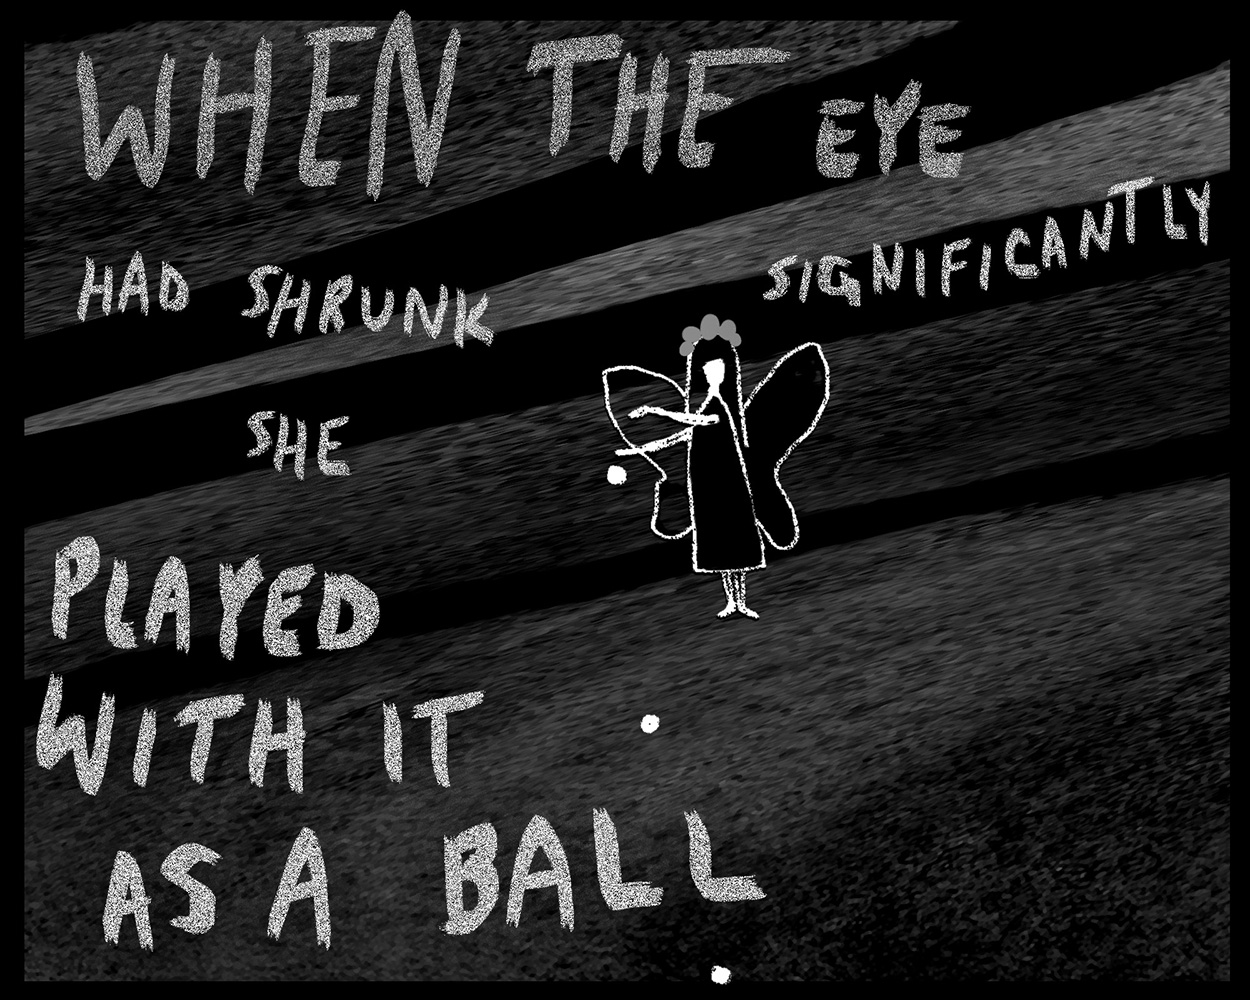 WHEN THE EYE
HAD SHRUNK SIGNIFICANTLY
SHE
PLAYED
WITH IT
AS A BALL